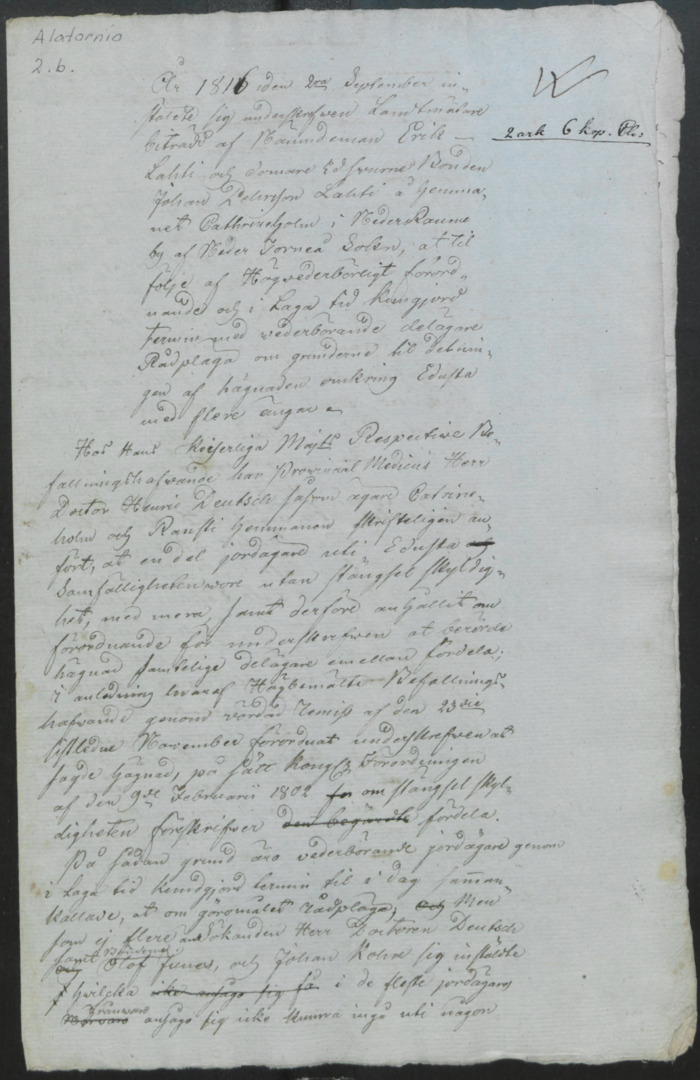 Alatornio
2.b.
År 1816 den 2dra September in-
stälte sig underskrefwen Landtmätare
biträdd af Nämndeman Erik
Lahti och Edswurne Bonden
Johan Lahti å Hemma-
net Cathrineholm i Neder Raumo
by af Neder Torneå Sokn, at til
följe af Högwederbörligt förord-
nande och i Laga tid kungjord
termin med wederbörande delägare
Rådplaga om grunderne til delnin-
gen af hägnaden omkring Edusta
med flere ängar
2 ark 6 kop.
Hos Hans Keiserliga Majts Respective Be-
fallningshafwande har Provincial Medicus Herr
Doctor Henric Deutsch såsom ägare Catrine-
holm och Hemmanen skrifteligen an-
fört, at en del jordägare uti Edusta
Samfälligheten wore utan stängsel skyldig-
het, med mera, samt derföre anhållit om
förordnande för underskrefwen at berörde
hägnad samtelige delägare emellan fördela;
i anledning hwaraf Högbemälte Befallnings-
hafwande genom wördad Remiss af den 23die
sistledne November förordnat underskrefwen at
sagde hägnad, på sätt Kongl. Förordningen
af den 9de Februarii 1802 om stängsel skyl-
digheten föreskrifwer den begärdte fördela.
På sådan grund äro wederbörande jordägare genom
i Laga tid kundgjord termin til i dag samman-
kallade, at om göromålet rådplaga, Men
som ej flere än Sökanden Herr Doctoren Deutsch
samt Olof Junes, och Johan sig instälte
hwilcka icke ansågo sig så i de fleste jordägares
frånwaro ansågo sig icke kunna ingå uti någon